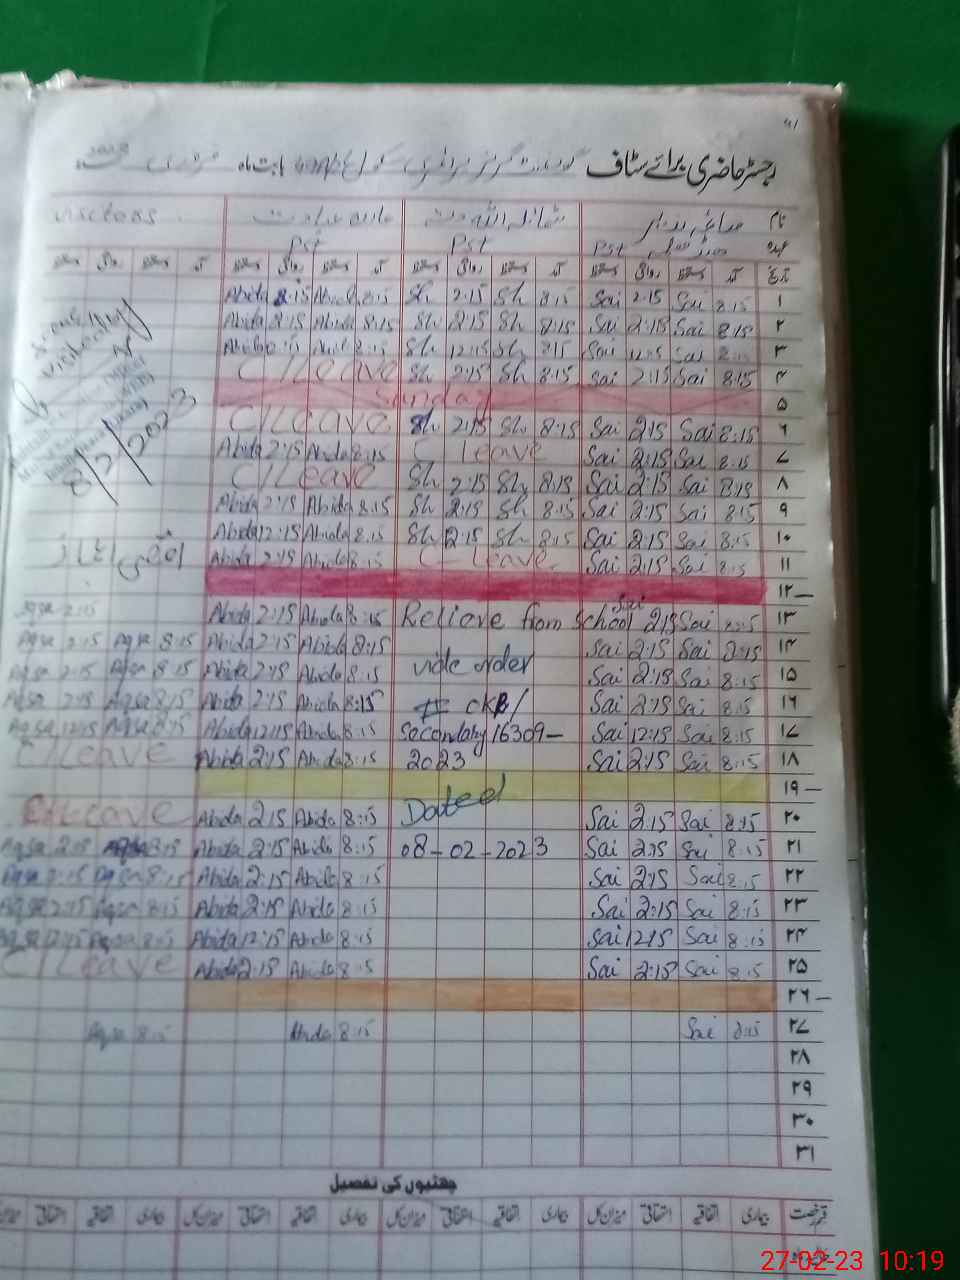 رجسٹر حاضری برائے سٹاف بابت ماہ فروری
نام
عہدہ Pst Pst Pst
تاریخ آمد دستخط روانگی دستخط آمد دستخط روانگی دستخط آمد دستخط روانگی دستخط آمد دستخط روانگی دستخط
Abida 2:15 Abida 8:15 Sh 2:15 Sh 8:15 Sai 2:15 Sai 8:15 ۱
Abida 2:15 Abida 8:15 Sh 2:15 Sh 8:15 Sai 2:15 Sai 8:15 ۲
Sh 12:15 Sh 8:15 Sai 12:15 Sai 8:15 ۳
C/Leave Sh 2:15 Sh 8:15 Sai 2:15 Sai 8:15 ۴
Sunday ۵
C/Leave Sh 2:15 Sh 8:15 Sai 2:15 Sai 8:15 ۶
Abida 2:15 Abida 8:15 C Leave Sai 2:15 Sai 8:15 ۷
8/2/2023 C/Leave Sh 2:15 Sh 8:15 Sai 2:15 Sai 8:15 ۸
Abida 2:15 Abida 8:15 Sh 2:15 Sh 8:15 Sai 2:15 Sai 8:15 ۹
Abida 12:15 Abida 8:15 Sh 2:15 Sh 8:15 Sai 2:15 Sai 8:15 ۱۰
Abida 2:15 Abida 8:15 C- Leave Sai 2:15 Sai 8:15 ۱۱
۱۲ –
Aqsa 2:15 Abida 2:15 Abida 8:15 Relieve from school Sai 2:15 Sai 8:15 ۱۳
Aqsa 2:15 Aqsa 8:15 Abida 2:15 Abida 8:15 Sai 2:15 Sai 8:15 ۱۴
Aqsa 2:15 Aqsa 8:15 Abida 2:15 Abida 8:15 vide order Sai 2:15 Sai 8:15 ۱۵
Aqsa 2:15 Aqsa 8:15 Abida 2:15 Abida 8:15 # CKB/ Sai 2:15 Sai 8:15 ۱۶
Aqsa 12:15 Aqsa 8:15 Abida 12:15 Abida 8:15 Secondary 16309– Sai 12:15 Sai 8:15 ۱۷
C/Leave Abida 2:15 Abida 8:15 2023 Sai 2:15 Sai 8:15 ۱۸
۱۹ –
C/Leave Abida 2:15 Abida 8:15 Dated Sai 2:15 Sai 8:15 ۲۰
Aqsa 2:15 Aqsa 8:15 Abida 2:15 Abida 8:15 08-02-2023 Sai 2:15 Sai 8:15 ۲۱
Aqsa 2:15 Aqsa 8:15 Abida 2:15 Abida 8:15 Sai 2:15 Sai 8:15 ۲۲
Aqsa 2:15 Aqsa 8:15 Abida 2:15 Abida 8:15 Sai 2:15 Sai 8:15 ۲۳
Aqsa 12:15 Aqsa 8:15 Abida 12:15 Abida 8:15 Sai 12:15 Sai 8:15 ۲۴
C/Leave Abida 2:15 Abida 8:15 Sai 2:15 Sai 8:15 ۲۵
۲۶ –
Aqsa 8:15 Abida 8:15 Sai 8:15 ۲۷
۲۸
۲۹
۳۰
۳۱
چھٹیوں کی تفصیل
قسم رخصت بیماری اتفاقیہ استحقاقی میزان کل بیماری اتفاقیہ استحقاقی میزان کل بیماری اتفاقیہ استحقاقی میزان کل بیماری اتفاقیہ استحقاقی میزان کل
27-02-23 10:19